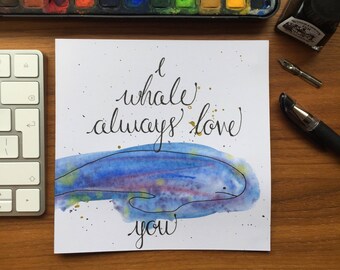 I
whale
always love
you